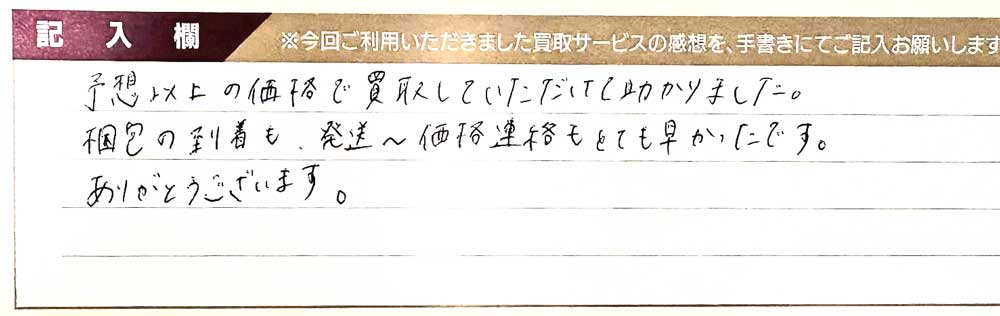 記入欄
※今回ご利用いただきました買取サービスの感想を、手書きにてご記入お願いします
予想以上の価格で買取していただけて助かりました。
梱包の到着も、発送~価格連絡もとても早かったです。
ありがとうございます。